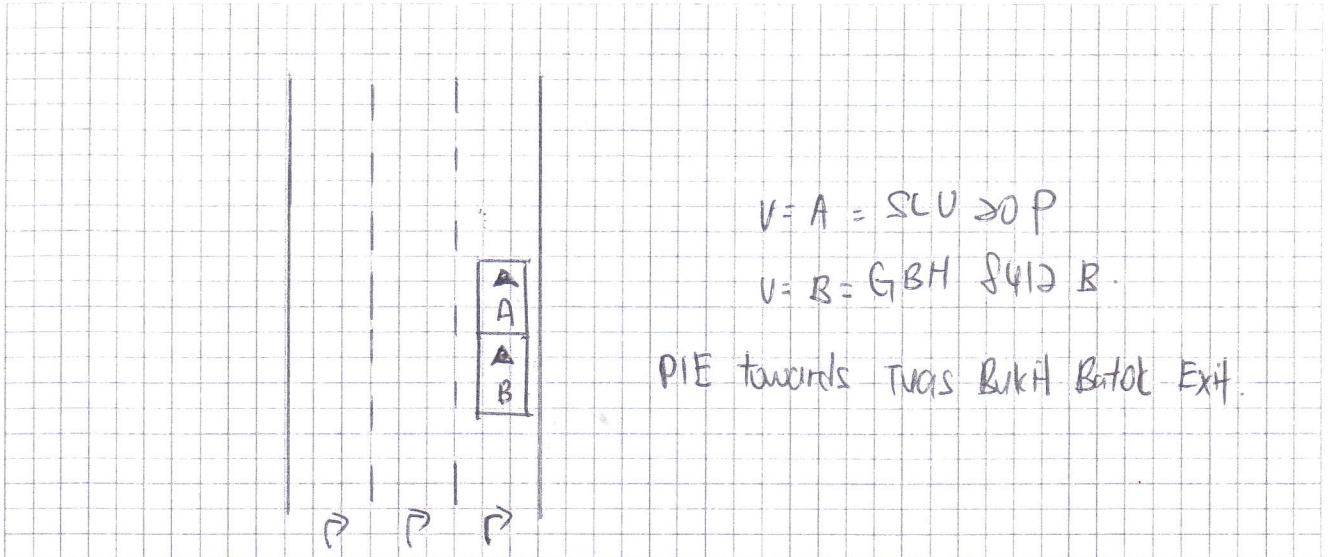 V= A = SLU 20 P
V= B = GBH 8412 B.
A
B
PIE towards Tuas Bukit Batok Exit.